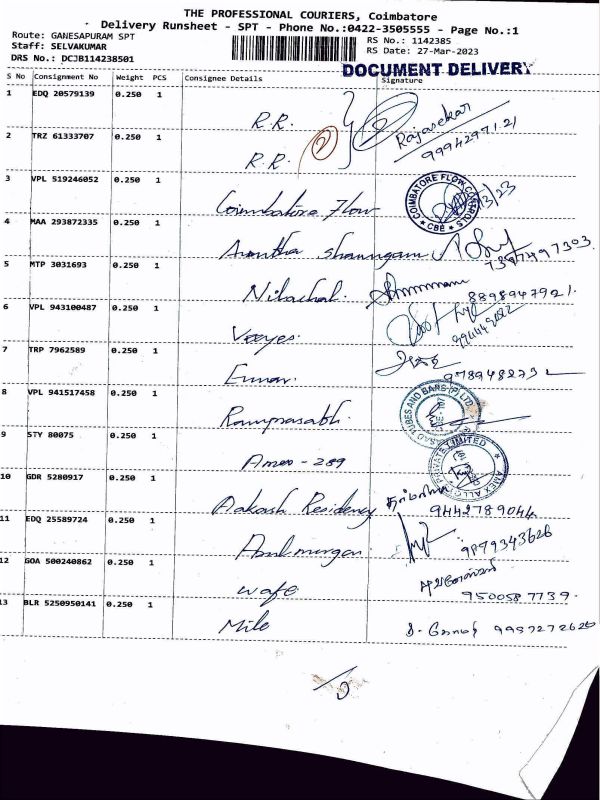 THE PROFESSIONAL COURIERS, Coimbatore
Delivery Runsheet - SPT - Phone No.:0422-3505555 - Page No.:1
Route: GANESAPURAM SPT
Staff: SELVAKUMAR
DRS No.: DCJB114238501
RS No.: 1142385
RS Date: 27-Mar-2023
DOCUMENT DELIVERY
S No Consignment No Weight PCS Consignee Details Signature
1 EDQ 20579139 0.250 1 R.R. Rajasekar
2 TRZ 61333707 0.250 1 R.R. 2 9994297121
3 VPL 519246052 0.250 1 Coimbatore Flow COIMBATORE FLOW CONTROLS CBE
4 MAA 293872335 0.250 1 7397497303
5 MTP 3031693 0.250 1 8898947921
6 VPL 943100487 0.250 1 Veeyes
7 TRP 7962589 0.250 1
8 VPL 941517458 0.250 1 TUBES AND BARS (P) LTD.
9 STY 80075 0.250 1 Amex-289 PRIVATE LIMITED
10 GDR 5280917 0.250 1 Aakash Residency 9442789044
11 EDQ 25589724 0.250 1 9879343626
12 GOA 500240862 0.250 1 wafe 9500587739
13 BLR 5250950141 0.250 1 Mile